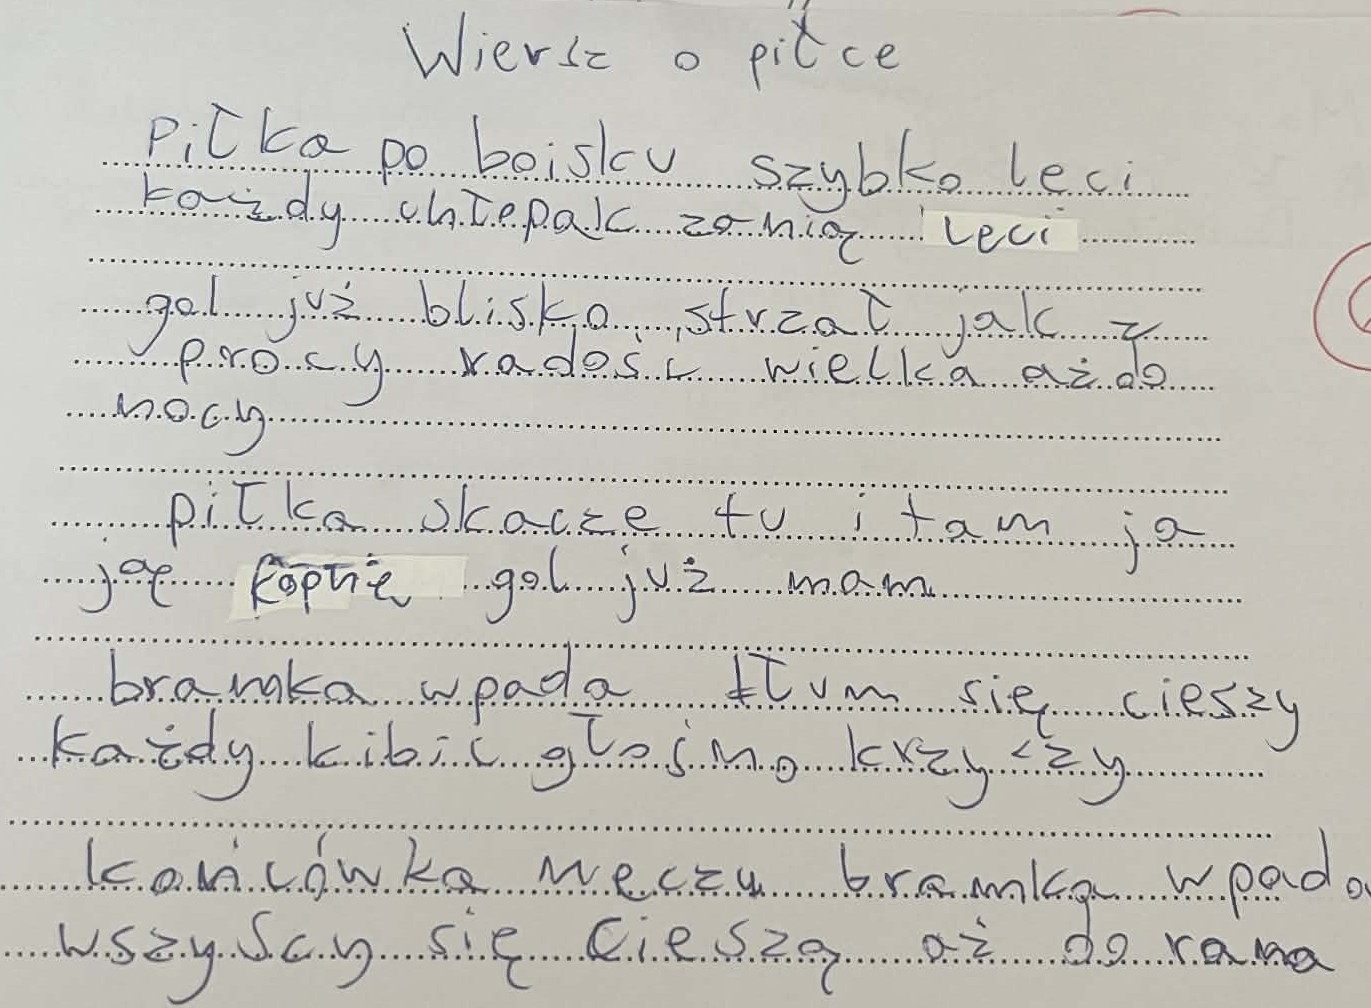 Wiersz o piłce
Piłka po boisku szybko leci
każdy chłepak za nią leci
gol już blisko, strzał jak z
procy radość wielka aż do
nocy
piłka skacze tu i tam ja
ją kopnię gol już mam
bramka wpada tłum się cieszy
każdy kibic głośno krzyczy
końcówka meczu bramka wpada
wszyscy się cieszą aż do rana